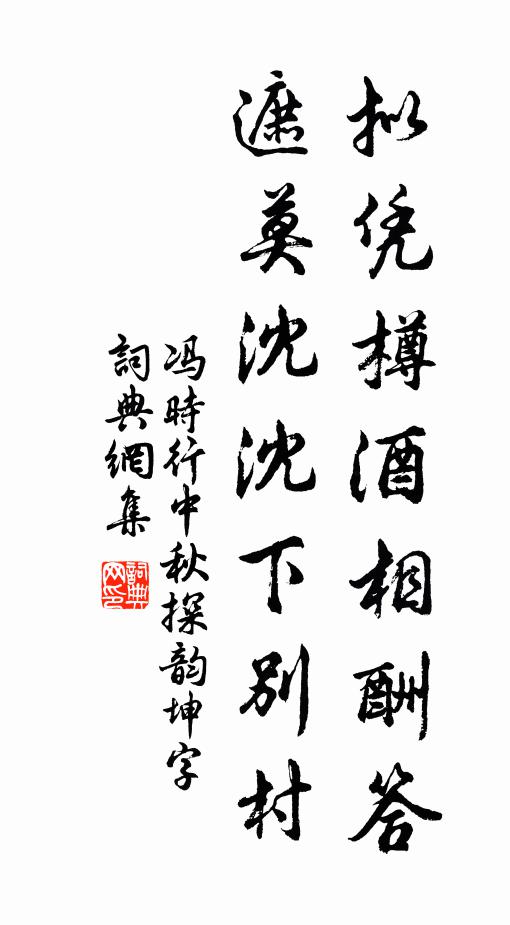 拟凭樽酒相酬答
遮莫沈沈下别村
冯時行中秋探韵坤字
詞典網集
詞典网印